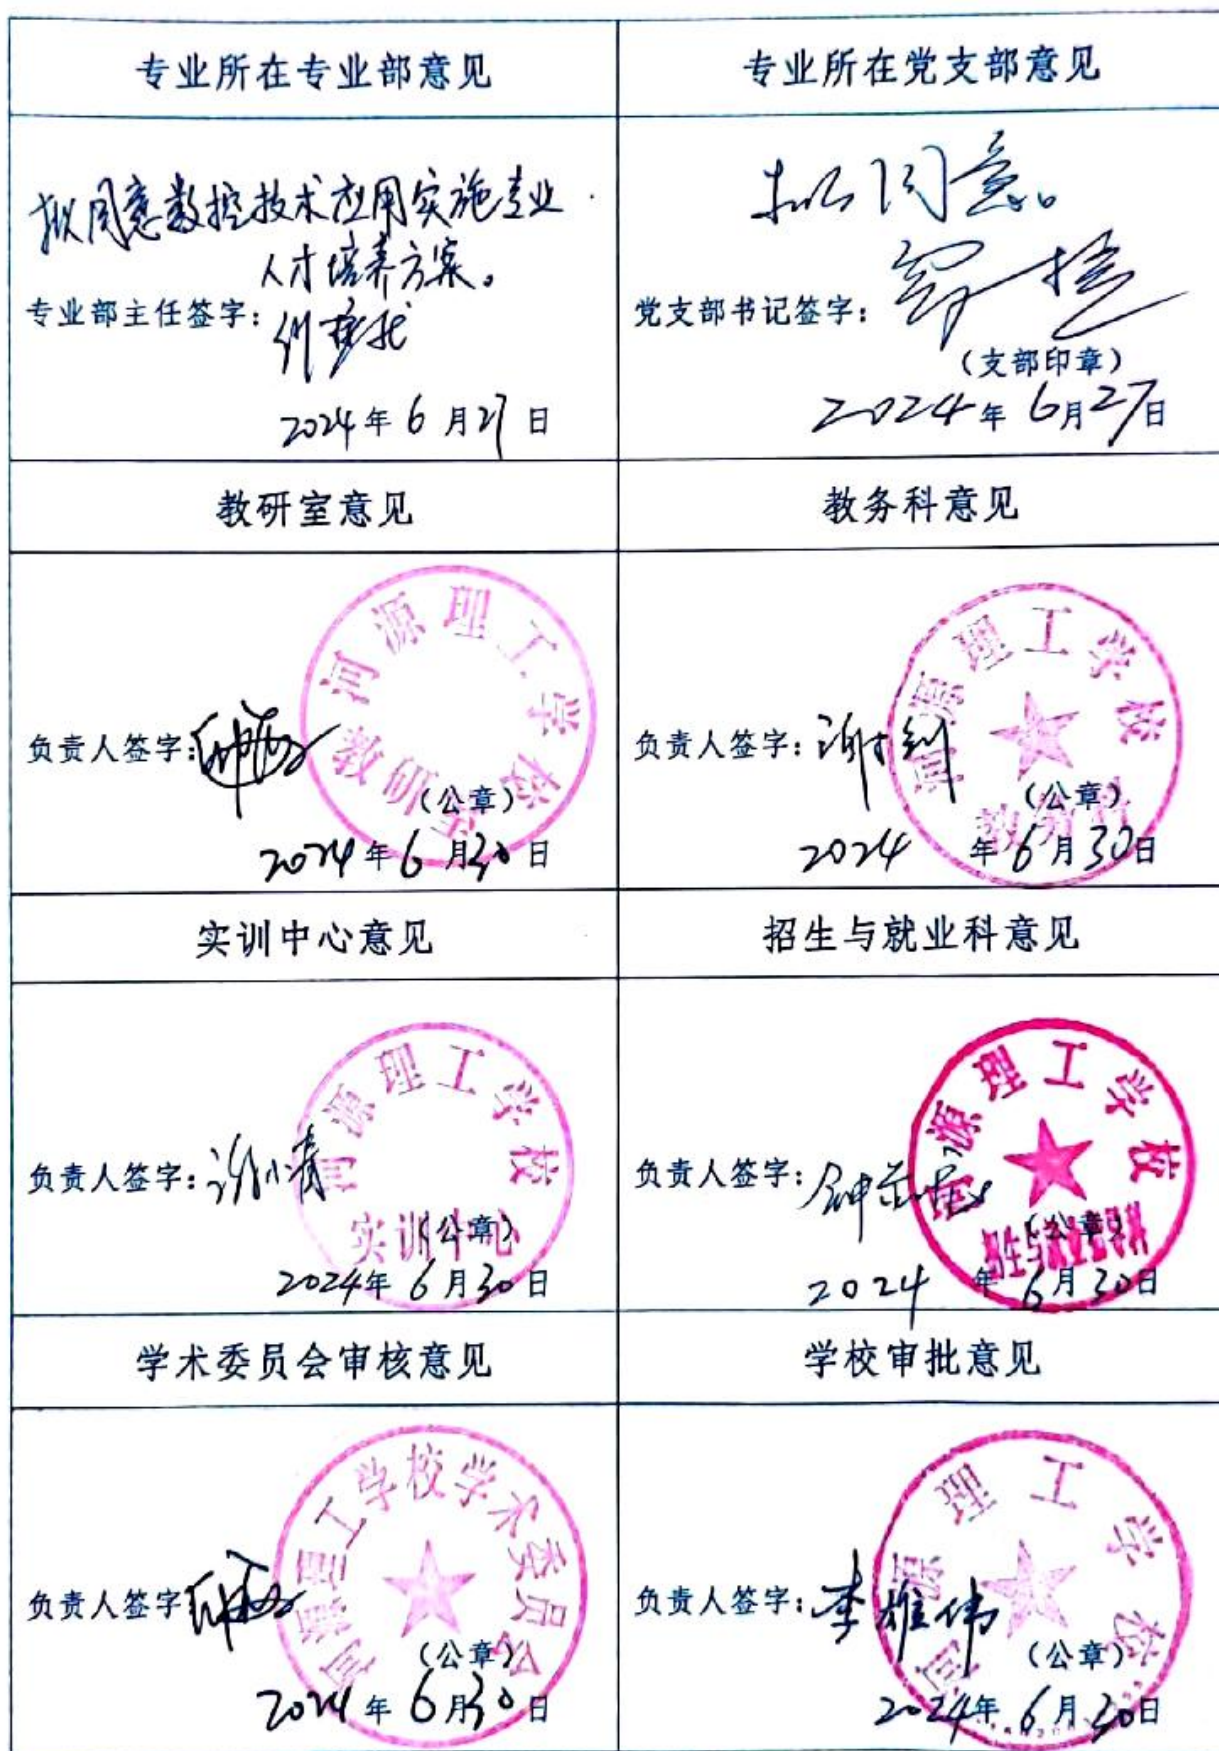 专业所在专业部意见
专业所在党支部意见
拟同意数控技术应用实施专业
人才培养方案。
专业部主任签字:
2024年6月27日
拟同意。
党支部书记签字:
(支部印章)
2024年6月27日
教研室意见
教务科意见
负责人签字:
河源理工学校
教研室
(公章)
2024年6月30日
负责人签字:谢钊
河源理工学校
教务科
(公章)
2024年6月30日
实训中心意见
招生与就业科意见
负责人签字:
河源理工学校
实训中心
(公章)
2024年6月30日
负责人签字:
河源理工学校
(公章)
2024年6月30日
学术委员会审核意见
学校审批意见
负责人签字
河源理工学校学术委员会
(公章)
2024年6月30日
负责人签字:李雄伟
河源理工学校
(公章)
2024年6月30日